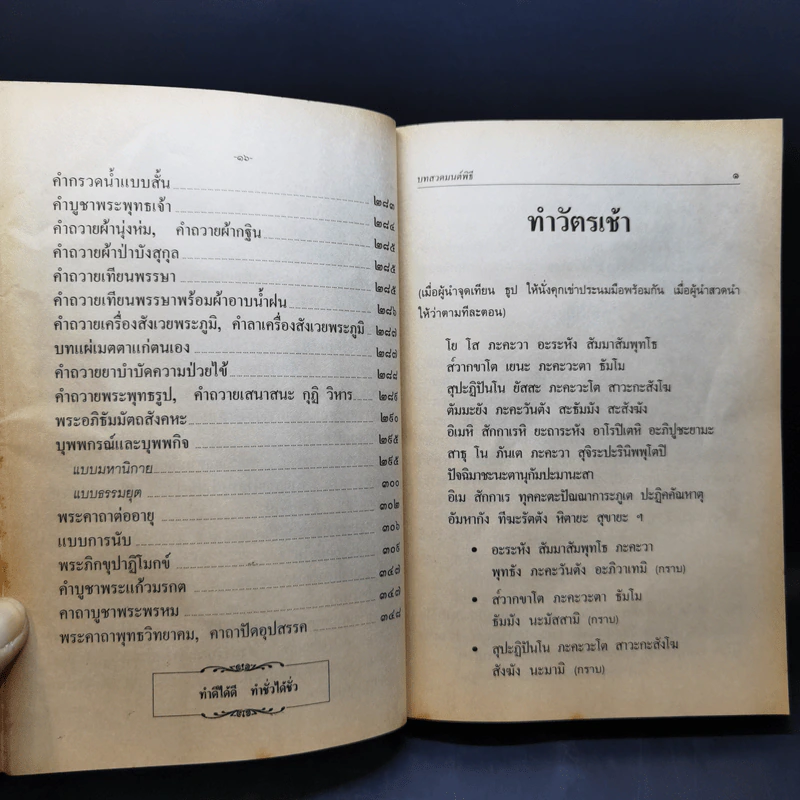 -๑๖-
คำกรวดน้ำแบบสั้น ๒๘๓
คำบูชาพระพุทธเจ้า ๒๘๔
คำถวายผ้านุ่งห่ม, คำถวายผ้ากฐิน ๒๘๕
คำถวายผ้าป่าบังสุกุล ๒๘๕
คำถวายเทียนพรรษา ๒๘๕
คำถวายเทียนพรรษาพร้อมผ้าอาบน้ำฝน ๒๘๖
คำถวายเครื่องสังเวยพระภูมิ, คำลาเครื่องสังเวยพระภูมิ ๒๘๗
บทแผ่เมตตาแก่ตนเอง ๒๘๗
คำถวายยาบำบัดความป่วยไข้ ๒๘๘
คำถวายพระพุทธรูป, คำถวายเสนาสนะ กุฏิ วิหาร ๒๘๙
พระอภิธัมมัตถสังคหะ ๒๙๐
บุพพกรณ์และบุพพกิจ ๒๙๕
แบบมหานิกาย ๒๙๕
แบบธรรมยุต ๓๐๐
พระคาถาต่ออายุ ๓๐๒
แบบการนับ ๓๐๖
พระภิกขุปาฏิโมกข์ ๓๐๙
คำบูชาพระแก้วมรกต ๓๔๗
คาถาบูชาพระพรหม ๓๔๗
พระคาถาพุทธวิทยาคม, คาถาปัดอุปสรรค ๓๔๘
ทำดีได้ดี ทำชั่วได้ชั่ว
บทสวดมนต์พิธี ๑
ทำวัตรเช้า
(เมื่อผู้นำจุดเทียน ธูป ให้นั่งคุกเข่าประนมมือพร้อมกัน เมื่อผู้นำสวดนำ
ให้ว่าตามทีละตอน)
โย โส ภะคะวา อะระหัง สัมมาสัมพุทโธ
ส๎วากขาโต เยนะ ภะคะวะตา ธัมโม
สุปะฏิปันโน ยัสสะ ภะคะวะโต สาวะกะสังโฆ
ตัมมะยัง ภะคะวันตัง สะธัมมัง สะสังฆัง
อิเมหิ สักกาเรหิ ยะถาระหัง อาโรปิเตหิ อะภิปูชะยามะ
สาธุ โน ภันเต ภะคะวา สุจิระปะรินิพพุโตปิ
ปัจฉิมาชะนะตานุกัมปะมานะสา
อิเม สักกาเร ทุคคะตะปัณณาการะภูเต ปะฏิคคัณหาตุ
อัมหากัง ทีฆะรัตตัง หิตายะ สุขายะ ฯ
• อะระหัง สัมมาสัมพุทโธ ภะคะวา
พุทธัง ภะคะวันตัง อะภิวาเทมิ (กราบ)
• ส๎วากขาโต ภะคะวะตา ธัมโม
ธัมมัง นะมัสสามิ (กราบ)
• สุปะฏิปันโน ภะคะวะโต สาวะกะสังโฆ
สังฆัง นะมามิ (กราบ)